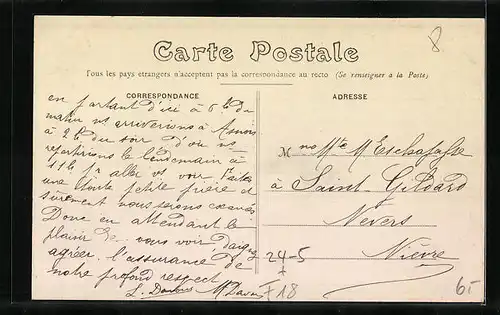 Carte Postale
Tous les pays etrangers n'acceptent pas la correspondance au recto (Se renseigner à la Poste)
CORRESPONDANCE
ADRESSE
8
en partant d'ici à 6h du
matin ns arriverions à
à 2h du soir d'où ns
repartirions le lendemain à
11h pr aller vs voir. Faites
une toute petite prière et
surement nous serons exaucés
Donc en attendant le
plaisir de vous voir daignez
agréer l'assurance de
notre profond respect
M
à Saint Gildard
Nevers
Nièvre
24-5
F18
6-